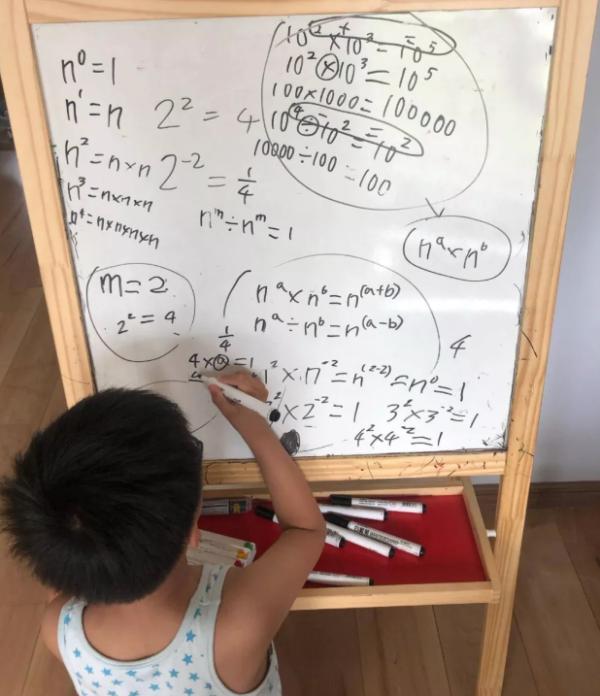 n⁰ = 1
n¹ = n
n² = n×n
n³ = n×n×n
n⁴ = n×n×n×n
2² = 4
2⁻² = 1/4
nᵐ ÷ nᵐ = 1
10² × 10³ = 10⁵
+ =
10² × 10³ = 10⁵
100×1000 = 100000
10⁴ ÷ 10² = 10²
10000 ÷ 100 = 100
nᵃ × nᵇ
m = 2
2² = 4
nᵃ × nᵇ = n⁽ᵃ⁺ᵇ⁾
nᵃ ÷ nᵇ = n⁽ᵃ⁻ᵇ⁾
1/4
4
4×a = 1
² × n⁻² = n⁽²⁻²⁾ = n⁰ = 1
² × 2⁻² = 1
3² × 3⁻² = 1
4² × 4⁻² = 1